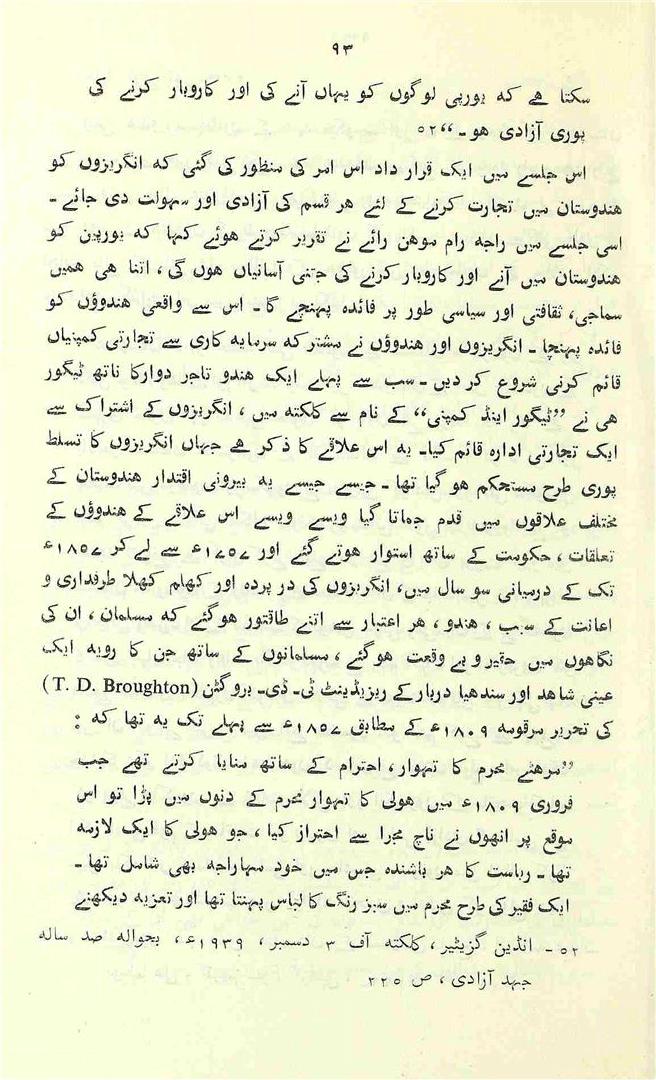 ۹۳
سکتا ہے کہ یورپی لوگوں کو یہاں آنے کی اور کاروبار کرنے کی
پوری آزادی ہو۔“ ۵۲
اس جلسے میں ایک قرار داد اس امر کی منظور کی گئی کہ انگریزوں کو
ہندوستان میں تجارت کرنے کے لئے ہر قسم کی آزادی اور سہولت دی جائے۔
اسی جلسے میں راجہ رام موہن رائے نے تقریر کرتے ہوئے کہا کہ یورپین کو
ہندوستان میں آنے اور کاروبار کرنے کی جتنی آسانیاں ہوں گی، اتنا ہی ہمیں
سماجی، ثقافتی اور سیاسی طور پر فائدہ پہنچے گا۔ اس سے واقعی ہندوؤں کو
فائدہ پہنچا۔ انگریزوں اور ہندوؤں نے مشترکہ سرمایہ کاری سے تجارتی کمپنیاں
قائم کرنی شروع کر دیں۔ سب سے پہلے ایک ہندو تاجر دوارکا ناتھ ٹیگور
ہی نے ”ٹیگور اینڈ کمپنی“ کے نام سے کلکتہ میں، انگریزوں کے اشتراک سے
ایک تجارتی ادارہ قائم کیا۔ یہ اس علاقے کا ذکر ہے جہاں انگریزوں کا تسلط
پوری طرح مستحکم ہو گیا تھا۔ جیسے جیسے یہ بیرونی اقتدار ہندوستان کے
مختلف علاقوں میں قدم جماتا گیا ویسے ویسے اس علاقے کے ہندوؤں کے
تعلقات، حکومت کے ساتھ استوار ہوتے گئے اور ۱۷۵۷ء سے لے کر ۱۸۵۷ء
تک کے درمیانی سو سال میں، انگریزوں کی در پردہ اور کھلم کھلا طرفداری و
اعانت کے سبب، ہندو، ہر اعتبار سے اتنے طاقتور ہوگئے کہ مسلمان، ان کی
نگاہوں میں حقیر و بے وقعت ہوگئے، مسلمانوں کے ساتھ جن کا رویہ ایک
عینی شاہد اور سندھیا دربار کے ریزیڈینٹ ٹی۔ ڈی۔ بروگٹن (T. D. Broughton)
کی تحریر مرقومہ ۱۸۰۹ء کے مطابق ۱۸۵۷ء سے پہلے تک یہ تھا کہ :
”مرہٹے محرم کا تہوار، احترام کے ساتھ منایا کرتے تھے جب
فروری ۱۸۰۹ء میں ہولی کا تہوار محرم کے دنوں میں پڑا تو اس
موقع پر انھوں نے ناچ مجرا سے احتراز کیا، جو ہولی کا ایک لازمہ
تھا۔ ریاست کا ہر باشندہ جس میں خود مہاراجہ بھی شامل تھا۔
ایک فقیر کی طرح محرم میں سبز رنگ کا لباس پہنتا تھا اور تعزیہ دیکھنے
۵۲۔ انڈین گزیٹیر، کلکتہ آف ۳ دسمبر، ۱۹۳۹ء، بحوالہ صد سالہ
جہد آزادی، ص ۲۲۵